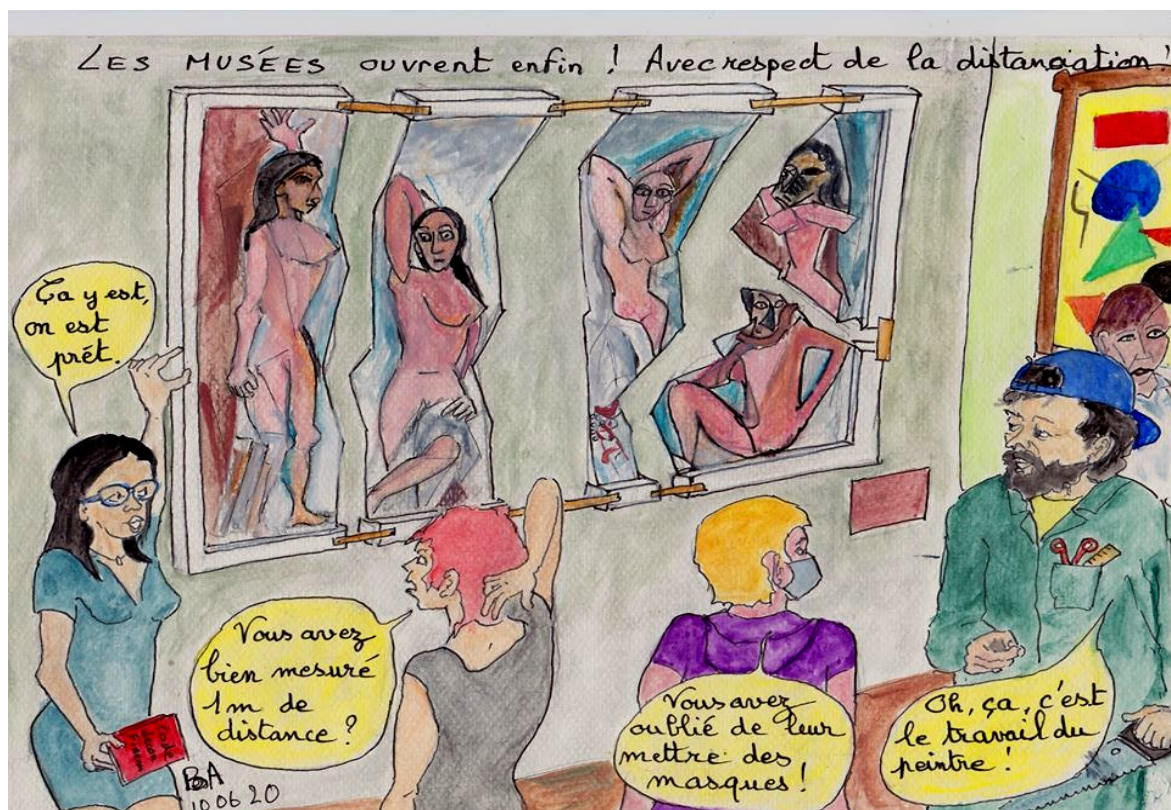 LES MUSÉES ouvrent enfin ! Avec respect de la distanciation !
Ça y est,
on est
prét.
Vous avez
bien mesuré
1m de
distance ?
Vous avez
oublié de leur
mettre des
masques !
Oh, ça, c'est
le travail du
peintre !
10 06 20